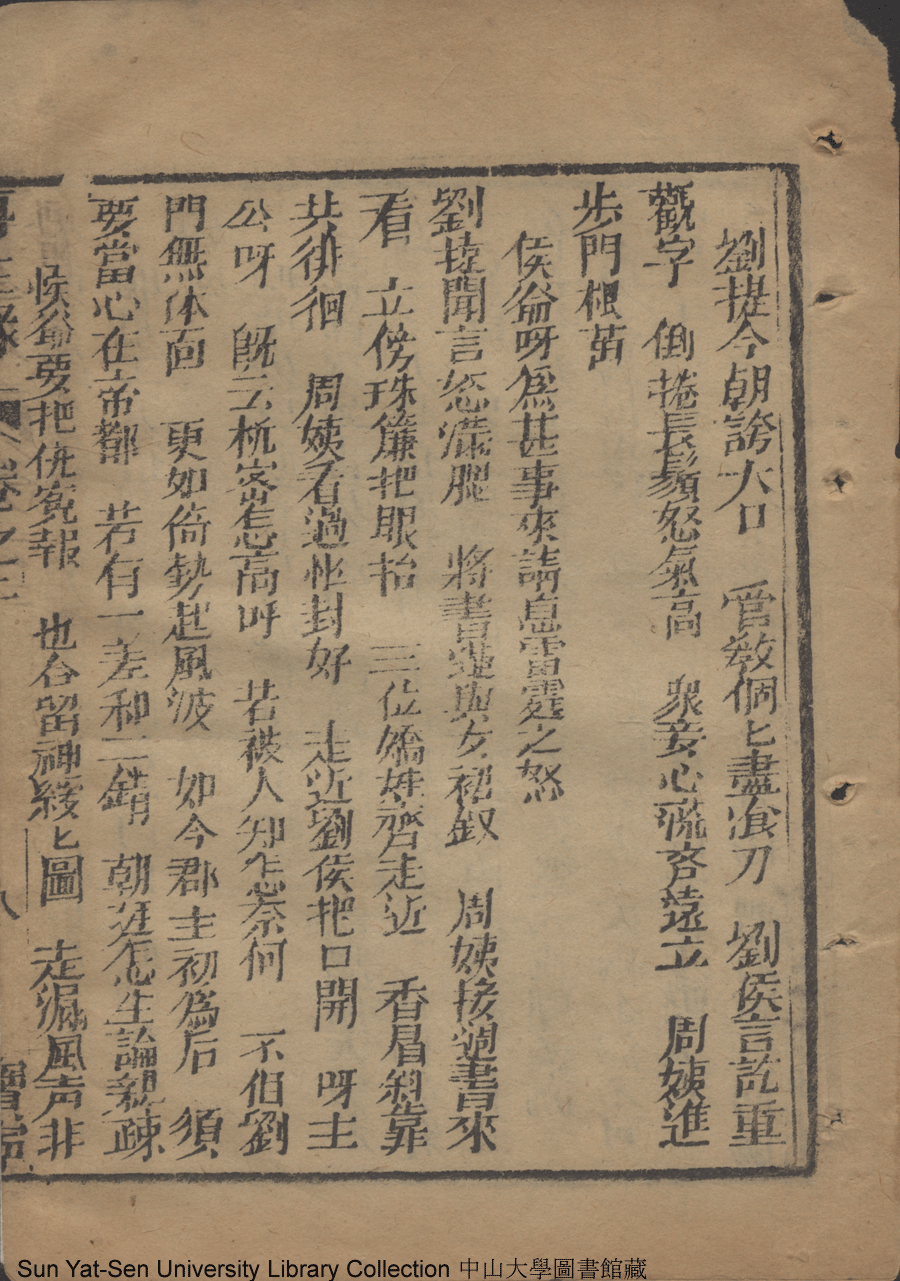 劉捷今朝誇大口　管教個匕盡飡刀　劉侯言訖重
觀字　倒捲長鬚怒氣高　衆妾心慌吝遠立　周姨進
步門根莭
侯爺呀為甚事來請息雷霆之怒
劉捷聞言怒滿腮　將書遞與女裙釵　周姨接過書來
看　立傍珠簾把眼抬　三位嬌娃齊走近　香昌斜靠
共徘徊　周姨看過忙封好　走近劉侯把口開　呀主
公呀　既云机密怎高呼　若被人知怎奈何　不伯劉
門無体面　更如倚勢起風波　如今郡主初為后　須
要當心在帝都　若有一差和二錯　朝廷怎生論親疎
候爺要把仇寃報　也合留神緩匕圖　走漏風声非
卷之
Sun Yat-Sen University Library Collection 中山大學圖書館藏